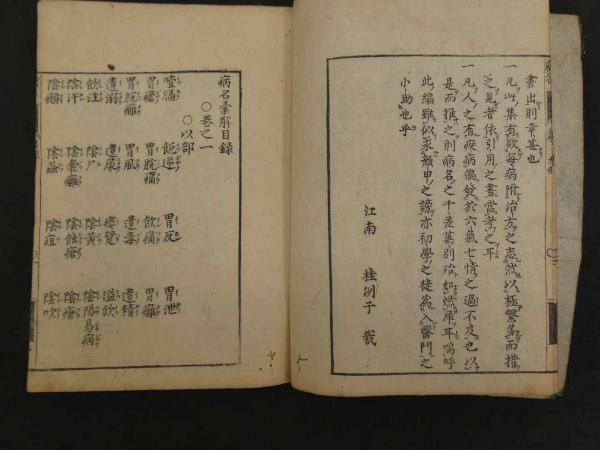 書出則幸甚也
一凡此集有欲每病附治方之志然以極繁多而措
之見者依引用之書當考之耳
一凡人之有疾病徧發於六氣七情之過不及也以
是而推之則病名之千差萬別殆如燃犀耳嗚呼
此編雖似豕
申之謗亦初學之徒為入醫門之
小助也乎
江南 桂洲子 識
病名彙解目録
○卷之一
○以部
噎膈 飽逆 胃反 胃泄
胃瘧 胃脘痛 飲痛 胃癰
胃脘癰 胃風 遺毒 遺精
遺溺 遺尿 溢飲
飲注 陰尸 陰黃 陰陽易病
陰汗 陰囊癢 陰蝕瘡 陰瘡
陰痛 陰蝨 陰疽 陰吹